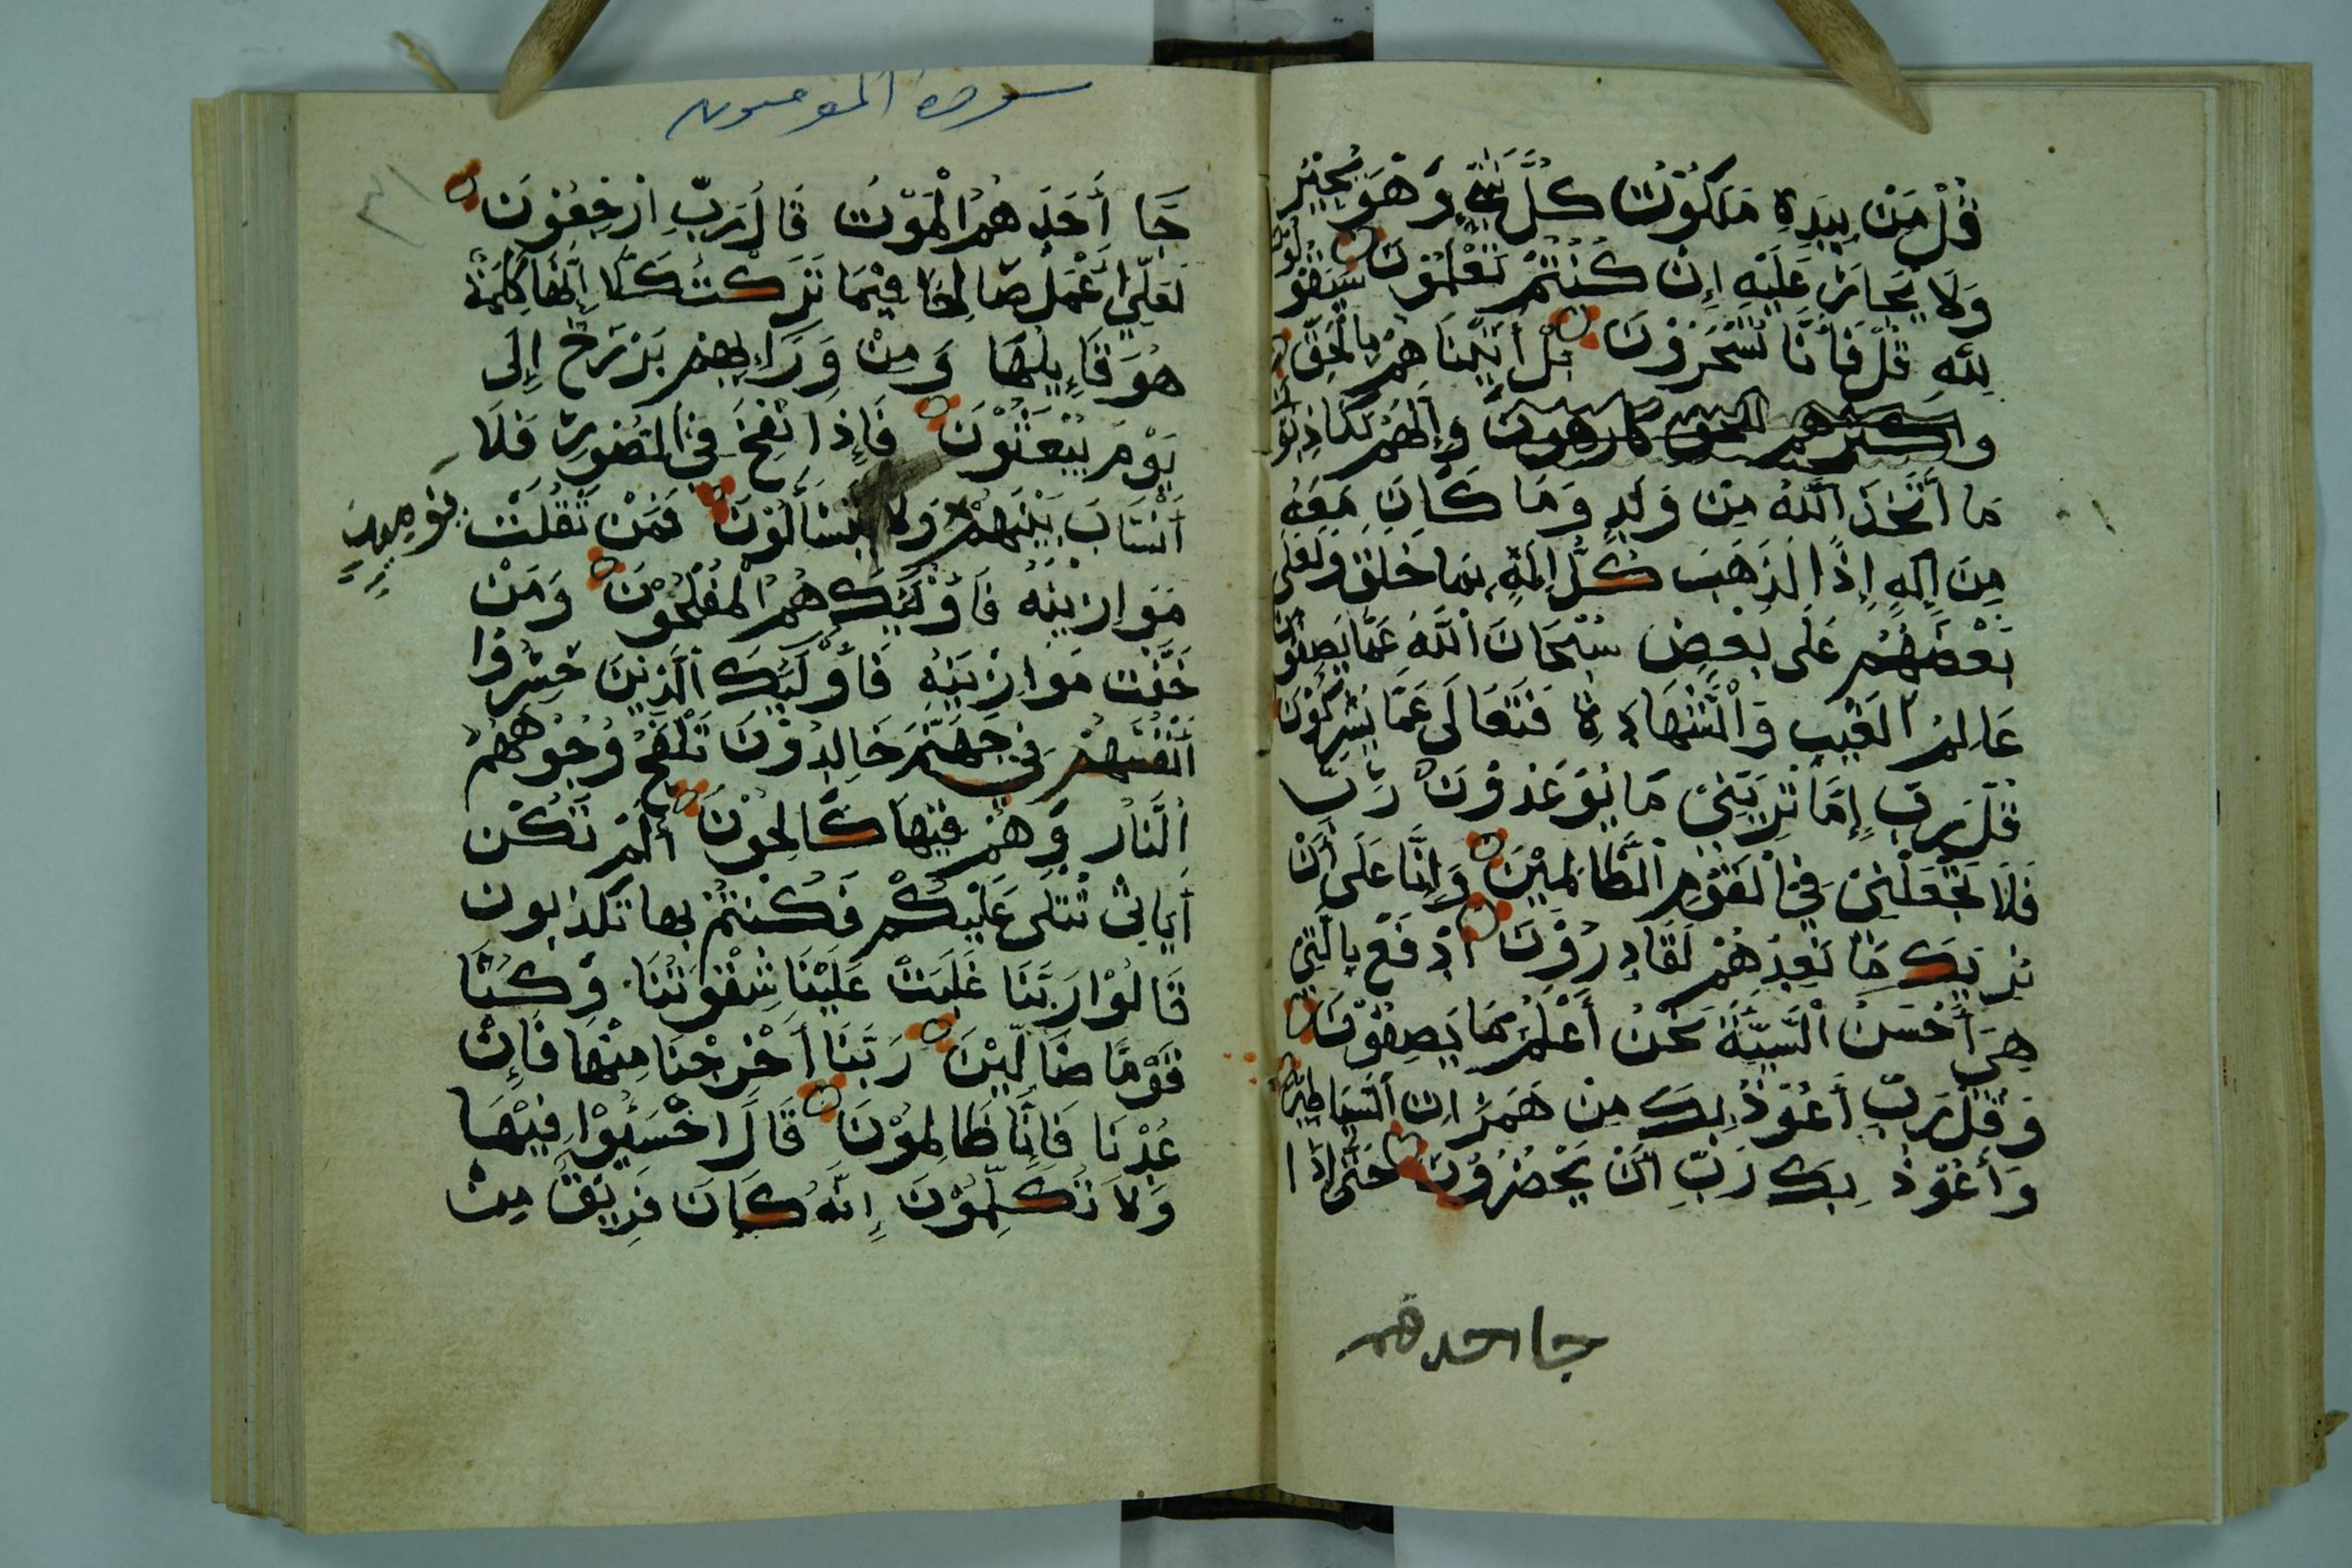 قُلْ مَنْ بِيَدِهِ مَلَكُوْتُ كُلِّ شَيْءٍ وَهُوَ يُجِيْرُ
وَلَا يُجَارُ عَلَيْهِ إِنْ كُنْتُمْ تَعْلَمُوْنَ سَيَقُوْلُوْنَ
لِلّهِ قُلْ فَأَنَّا تُسْحَرُوْنَ بَلْ أَتَيْنَاهُمْ بِالْحَقِّ
واكثرهم للحق كارهون وَإِنَّهُمْ لَكَاذِبُوْنَ
مَا أتَّخَذَ اللّهُ مِنْ وَلَدٍ وَمَا كَانَ مَعَهُ
مِنَ إِلَهٍ إِذًا لَذَهَبَ كُلُّ إِلَهٍ بِمَا خَلَقَ وَلَعَلَى
بَعْضُهُمْ عَلَى بَعْضٍ سُبْحَانَ اللّهِ عَمَّا يَصِفُوْنَ
عَالِمُ الْغَيْبِ وَالْشَّهَادِةِ فَتَعَالَى عَمَّا يُشْرِكُوْنَ
قُلْ رَبِّ إِمَّا تُرِيَنِّيْ مَا يُوْعَدُوْنَ رَبِّ
فَلَا تَجْعَلْنِيْ فِيْ الْقَوْمِ الْظَّالِمِيْنَ وَإِنَّا عَلَى أَنْ
نُرِيَكَ مَا نَعِدُهُمْ لَقَادِرُوْنَ ادْفَعْ بِالَّتِيْ
هِيَ أَحْسَنُ الْسَّيِّئَةَ نَحْنُ أَعْلَمُ بِمَا يَصِفُوْنَ
وَقُلْ رَبِّ أَعُوْذُ بِكَ مِنْ هَمَزَاتِ الشَّيَاطِيْنِ
وَأَعُوْذُ بِكَ رَبِّ أَنْ يَحْضُرُوْنَ حَتَّى إِذَا
جا احدهم
سورة المومنون
٣١
جَا أَحَدَهُمُ الْمَوْتُ قَالَ رَبِّ ارْجِعُوْنَ
لَعَلِّيْ أَعْمَلُ صَالِحًا فِيْمَا تَرَكْتُ كَلَّا إِنَّهَا كَلِمَةٌ
هُوَ قَاإِيلُهَا وَمِنْ وَرَاءِيهِمْ بَرْزَخٌ إِلَى
يَوْمَ يُبْعَثُوْنَ فَإِذَا نُفِخَ فِيْ الصُّوْرِ فَلَا
أَنْسَابَ بَيْنَهُمْ وَلَا يَتَسَأَلُوْنَ فَمَنْ ثَقُلَتْ
يَوْمَيِذٍ
مَوَازِيْنُهُ فَأُوْلَيِكَ هُمُ الْمُفْلِحُوْنَ وَمَنْ
خَفَّتْ مَوَازِيْنُهُ فَأُوْلَيِكَ الَّذِيْنَ خَسِرُوْا
أَنْفُسَهُمْ فِيْ جَهَنَّمَ خَالِدُوْنَ تَلْفَحُ وُجُوْهَهُمُ
الْنَّارُ وَهُمْ فِيْهَا كَالِحُوْنَ أَلَمْ تَكُنْ
أَيَاتِيْ تُتْلَى عَلَيْكُمْ فَكُنْتُمْ بها تكذبون
قَالُوْا رَبَّنَا غَلَبَتْ عَلَيْنَا شِقْوَتُنَا وَكُنَّا
قَوْمًا ضَالِّيْنَ رَبَّنَا أَخْرِجْنَا مِنْهَا فَإِنْ
عُدْنَا فَإِنَّا ظَالِمُوْنَ قَالَ اخْسَئُوْا فِيْهَا
وَلَا تُكَلِّمُوْنَ إِنَّهُ كَانَ فَرِيْقٌ مِنْ